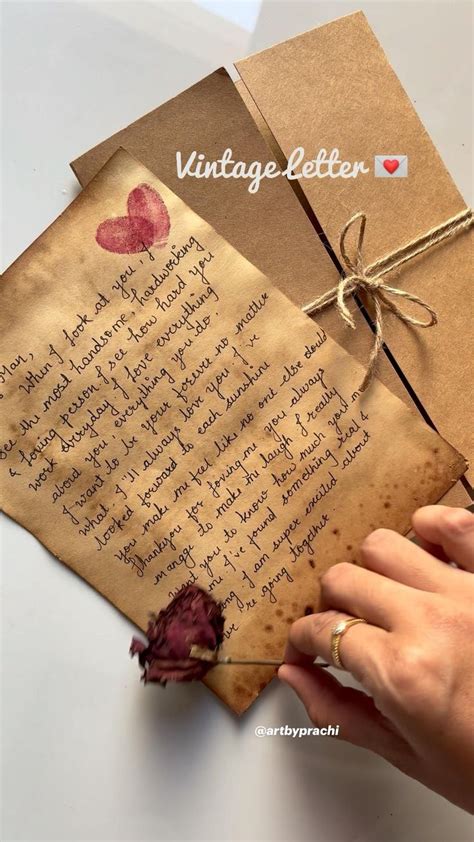 Vintage Letter 💌
Man,
When I look at you, I
see the most handsome, hardworking
& loving person. I see how hard you
work everyday. I love everything
about you & everything you do.
I want to be your forever no matter
what. I'll always love you. I've
looked forward to each sunshine
you make me feel like no one else does
Thankyou for loving me you always
manage to make me laugh. I really
want you to know how much you
me I've found something real &
I am super excited about
we're going together
@artbyprachi